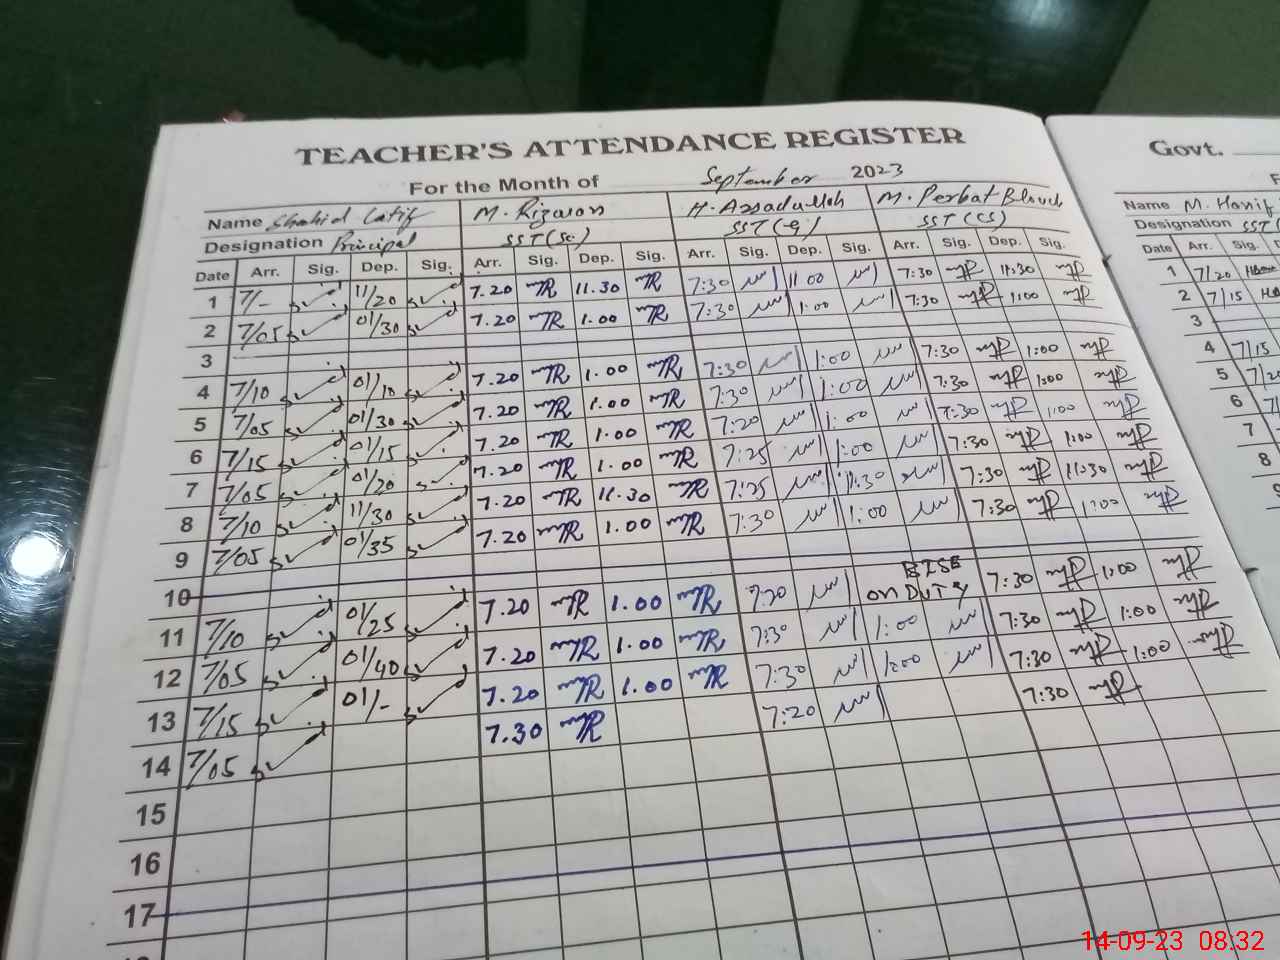 TEACHER'S ATTENDANCE REGISTER
For the Month of September 2023
Name Shahid Latif M. Rizwan H. Assadullah M. Perbat Blouch
Designation Principal SST (Sc) SST (G) SST (CS)
Date Arr. Sig. Dep. Sig. Arr. Sig. Dep. Sig. Arr. Sig. Dep. Sig. Arr. Sig. Dep. Sig.
1 7/- 11/20 7.20 11.30 7:30 11:00 7:30 11:30
2 7/05 01/30 7.20 1.00 7:30 1:00 7:30 1:00
3
4 7/10 01/10 7.20 1.00 7:30 1:00 7:30 1:00
5 7/05 01/30 7.20 1.00 7:30 1:00 7:30 1:00
6 7/15 01/15 7.20 1.00 7:20 1:00 7:30 1:00
7 7/05 01/20 7.20 1.00 7:25 1:00 7:30 1:00
8 7/10 11/30 7.20 11.30 7:25 11:30 7:30 11:30
9 7/05 01/35 7.20 1.00 7:30 1:00 7:30 1:00
10
11 7/10 01/25 7.20 1.00 7:20 BISE ON DUTY 7:30 1:00
12 7/05 01/40 7.20 1.00 7:30 1:00 7:30 1:00
13 7/15 01/- 7.20 1.00 7:30 1:00 7:30 1:00
14 7/05 7.30 7:20 7:30
15
16
17
Govt.
Name M. Hanif
Designation SST
Date Arr. Sig.
1 7/20
2 7/15
3
4 7/15
5
6
7
8
14-09-23 08:32